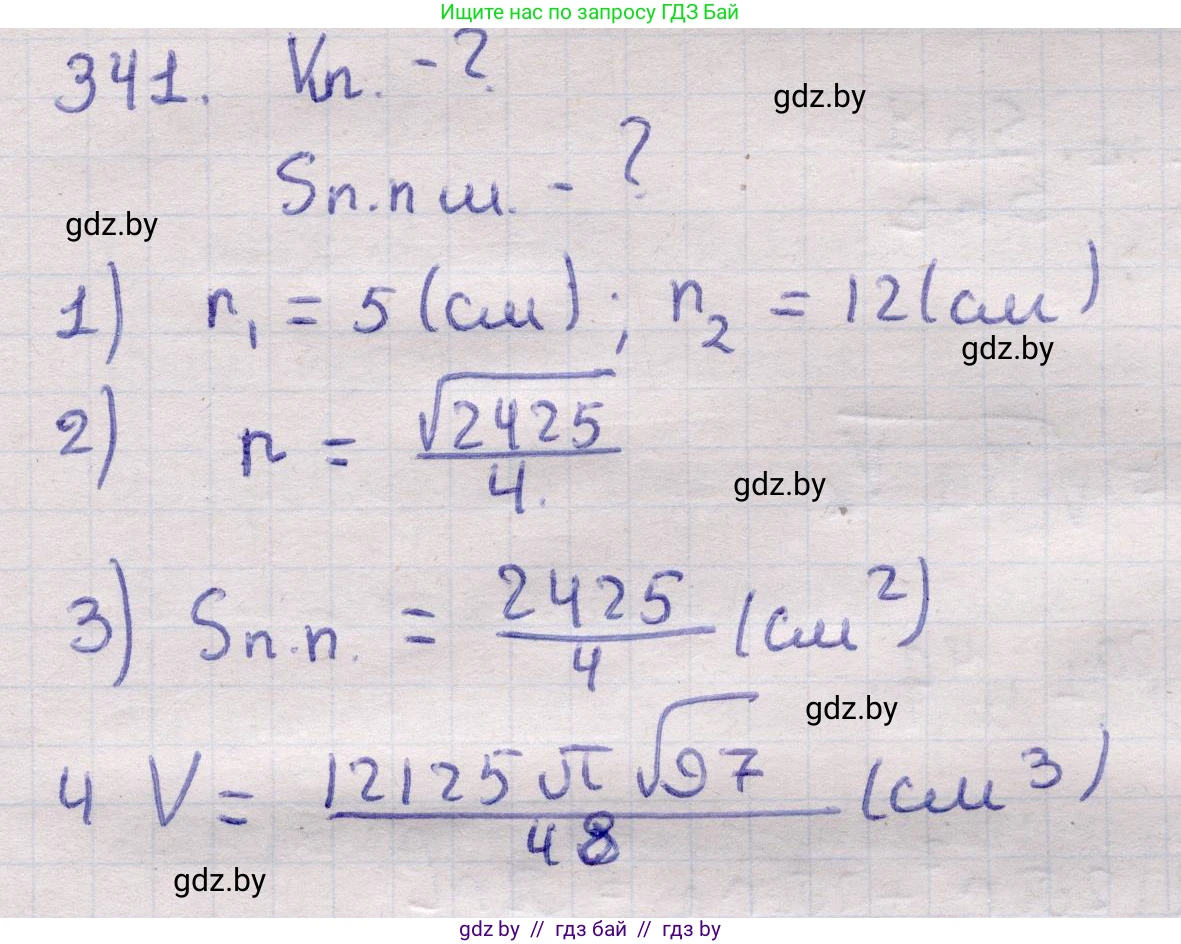 Ищите нас по запросу ГДЗ Бай
341. Vп. - ?
gdz.by
Sп.п ш. - ?
gdz.by
1) r₁ = 5 (см) ; r₂ = 12 (см)
gdz.by
2) r = √2425 / 4.
gdz.by
3) Sп.п. = 2425 / 4 (см²)
gdz.by
4 V = 12125 π √97 / 48 (см³)
gdz.by
gdz by // гдз бай // гдз by